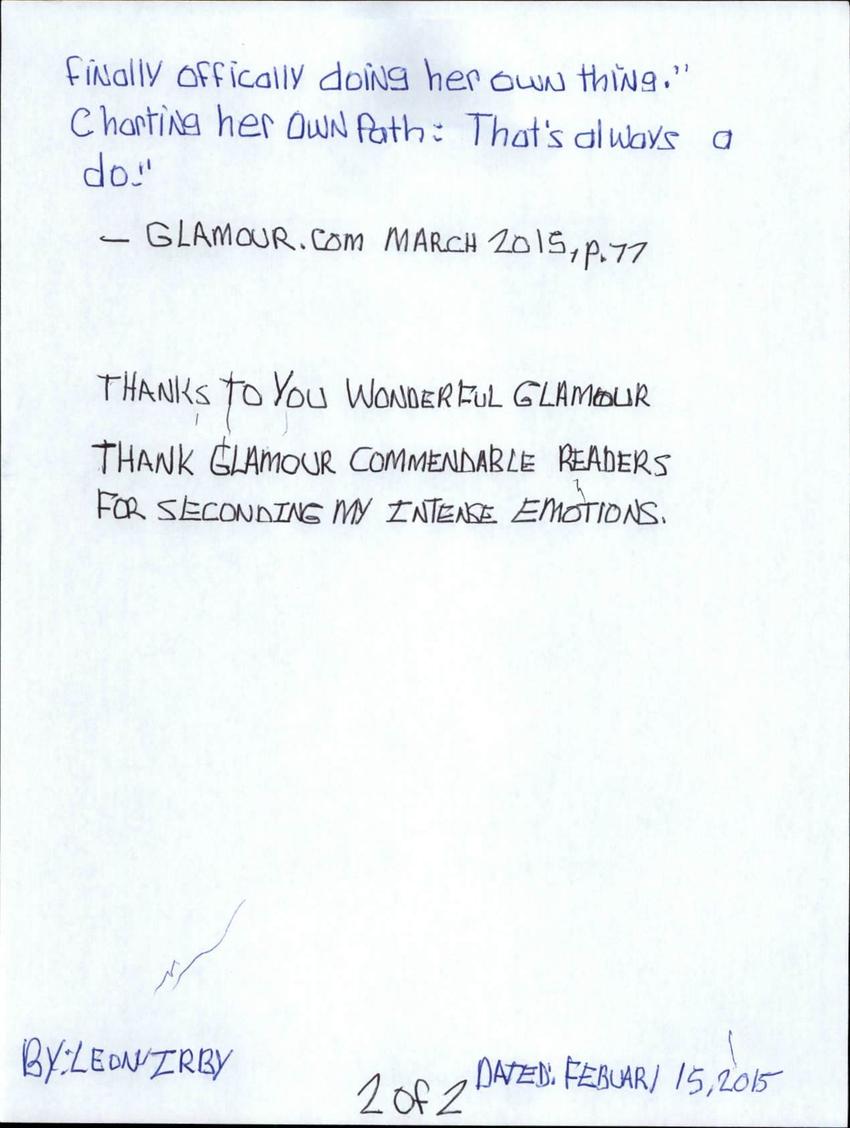 Finally offically doing her own thing."
Charting her own Path: That's always a
do."
— GLAMOUR.COM MARCH 2015, p.77
THANKS TO YOU WONDERFUL GLAMOUR
THANK GLAMOUR COMMENDABLE READERS
FOR SECONDING MY INTENSE EMOTIONS.
BY: LEON IRBY
2 of 2
DATED: FEBUARI 15, 2015